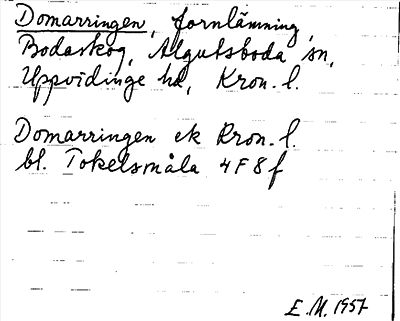 Domarringen, fornlämning,
Bodaskog, Algutsboda sn,
Uppvidinge hd, Kron. l.
Domarringen ek Kron. l.
bl. Tokelsmåla 4F8f
E.M. 1957